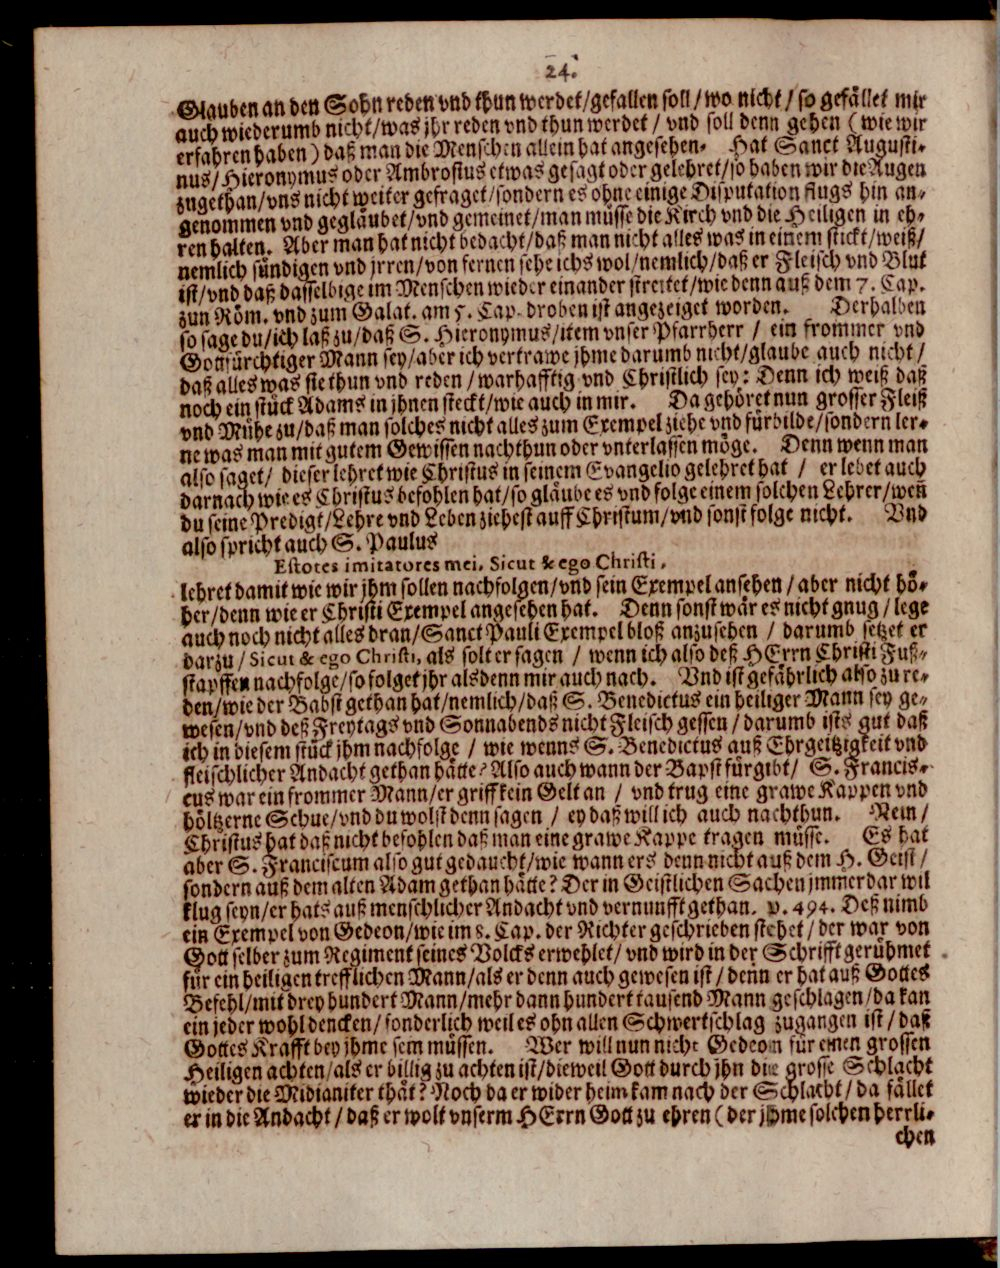 24.
Glauben an den Sohn reden vnd thun werdet/gefallen soll/wo nicht/so gefället mir
auch wiederumb nicht/was jhr reden vnd thun werdet/vnd soll denn gehen (wie wir
erfahren haben) daß man die Menschen allein hat angesehen. Hat Sanct Augusti-
nus/Hieronymus oder Ambrosius etwas gesagt oder gelehret/so haben wir die Augen
zugethan/vns nicht weiter gefraget/sondern es ohne einige Disputation flugs hin an-
genommen vnd gegläubet/vnd gemeinet/man müsse die Kirch vnd die Heiligen in eh-
ren halten. Aber man hat nicht bedacht/daß man nicht alles was in einem stickt/weiß/
nemlich sündigen vnd jrren/von fernen sehe ichs wol/nemlich/daß er Fleisch vnd Blut
ist/vnd daß dasselbige im Menschen wieder einander streitet/wie denn auß dem 7. Cap.
zun Röm. vnd zum Galat. am 5. Cap. droben ist angezeiget worden. Derhalben
so sage du/ich laß zu/daß S. Hieronymus/item vnser Pfarrherr/ein frommer vnd
Gottsürchtiger Mann sey/aber ich vertrawe jhme darumb nicht/glaube auch nicht/
daß alles was sie thun vnd reden/warhafftig vnd Christlich sey: Denn ich weiß daß
noch ein stück Adams in jhnen steckt/wie auch in mir. Da gehöret nun grosser Fleiß
vnd Mühe zu/daß man solches nicht alles zum Exempel ziehe vnd fürbilde/sondern ler-
ne was man mit gutem Gewissen nachthun oder vnterlassen möge. Denn wenn man
also saget/dieser lehret wie Christus in seinem Evangelio gelehret hat/er lebet auch
darnach wie es Christus befohlen hat/so gläube es vnd folge einem solchen Lehrer/weñ
du seine Predigt/Lehre vnd Leben ziehest auff Christum/vnd sonst folge nicht. Vnd
also spricht auch S. Paulus
Estotes imitatores mei. Sicut & ego Christi.
lehret damit wie wir jhm sollen nachfolgen/vnd sein Exempel ansehen/aber nicht hö-
her/denn wie er Christi Exempel angesehen hat. Denn sonst wär es nicht gnug/lege
auch noch nicht alles dran/Sanct Pauli Exempel bloß anzusehen/darumb setzet er
darzu/Sicut & ego Christi, als solt er sagen/wenn ich also deß HErrn Christi Fuß-
stapffen nachfolge/so folget jhr alsdenn mir auch nach. Vnd ist gefährlich also zu re-
den/wie der Babst gethan hat/nemlich/daß S. Benedictus ein heiliger Mann sey ge-
wesen/vnd deß Freytags vnd Sonnabends nicht Fleisch gessen/darumb ists gut daß
ich in diesem stück jhm nachfolge/wie wenns S. Benedictus auß Ehrgeitzigkeit vnd
fleischlicher Andacht gethan hätte? Also auch wann der Bapst fürgibt/S. Francis-
cus war ein frommer Mann/er griff kein Gelt an/vnd trug eine grawe Kappen vnd
höltzerne Schue/vnd du wolst denn sagen/ey daß will ich auch nachthun. Nein/
Christus hat daß nicht befohlen daß man eine grawe Kappe tragen müsse. Es hat
aber S. Franciscum also gut gedaucht/wie wann ers denn nicht auß dem H. Geist/
sondern auß dem alten Adam gethan hätte? Der in Geistlichen Sachen jmmerdar wil
klug seyn/er hats auß menschlicher Andacht vnd vernunfft gethan. p. 494. Deß nimb
ein Exempel von Gedeon/wie im 8. Cap. der Richter geschrieben stehet/der war von
Gott selber zum Regiment seines Volcks erwehlet/vnd wird in der Schrifft gerühmet
für ein heiligen trefflichen Mann/als er denn auch gewesen ist/denn er hat auß Gottes
Befehl/mit drey hundert Mann/mehr dann hundert tausend Mann geschlagen/da kan
ein jeder wohl dencken/sonderlich weil es ohn allen Schwertschlag zugangen ist/daß
Gottes Krafft bey jhme sein müssen. Wer will nun nicht Gedeon für einen grossen
Heiligen achten/als er billig zu achten ist/dieweil Gott durch jhn die grosse Schlacht
wieder die Midianiter thät? Noch da er wider heim kam nach der Schlacht/da fället
er in die Andacht/daß er wolt vnserm HErrn Gott zu ehren (der jhme solchen herrli-
chen